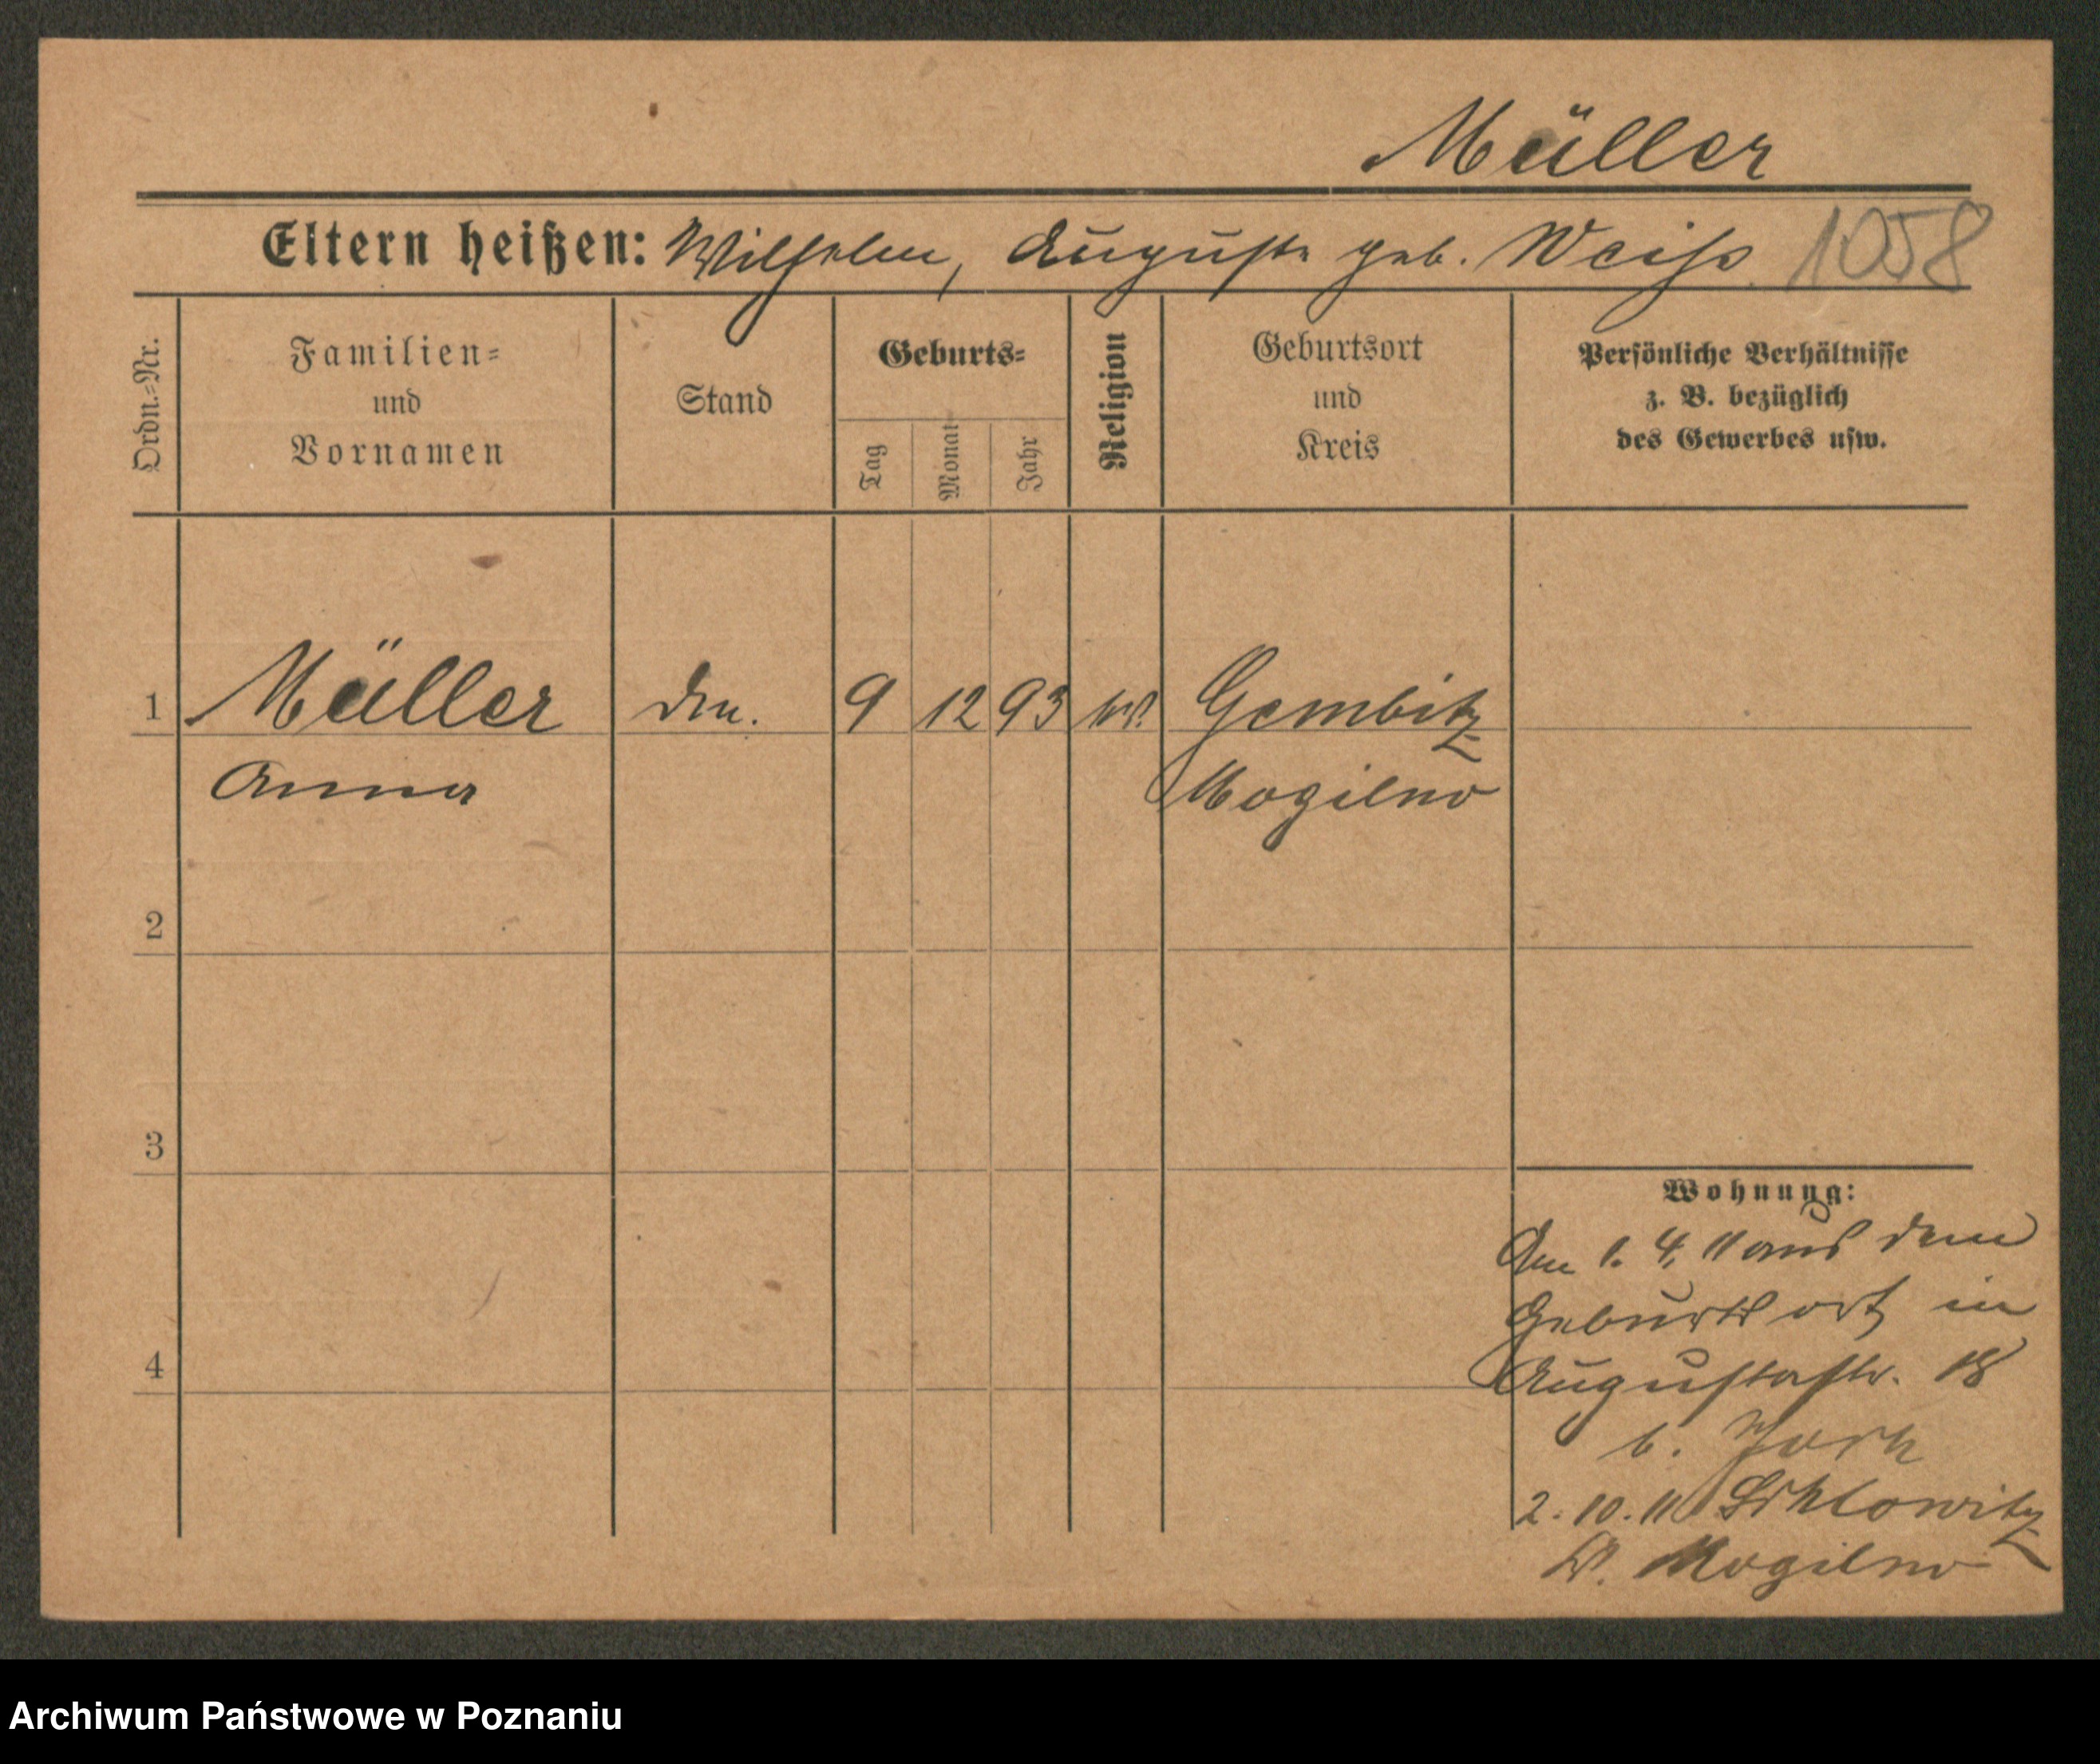 Müller
Eltern heißen: Wilhelm, Auguste geb. Weiß. 1058
Ordn.=Nr.
Familien=
und
Vornamen
Stand
Geburts=
Tag
Monat
Jahr
Religion
Geburtsort
und
Kreis
Persönliche Verhältnisse
z. B. bezüglich
des Gewerbes usw.
1 Müller 9 12 93 Gembitz
Anna Mogilno
2
3
4
Wohnung:
Am 1. 4. 11 aus dem
Geburtsort in
Augustastr. 18
b. York
2. 10. 11
Kr. Mogilno
Archiwum Państwowe w Poznaniu